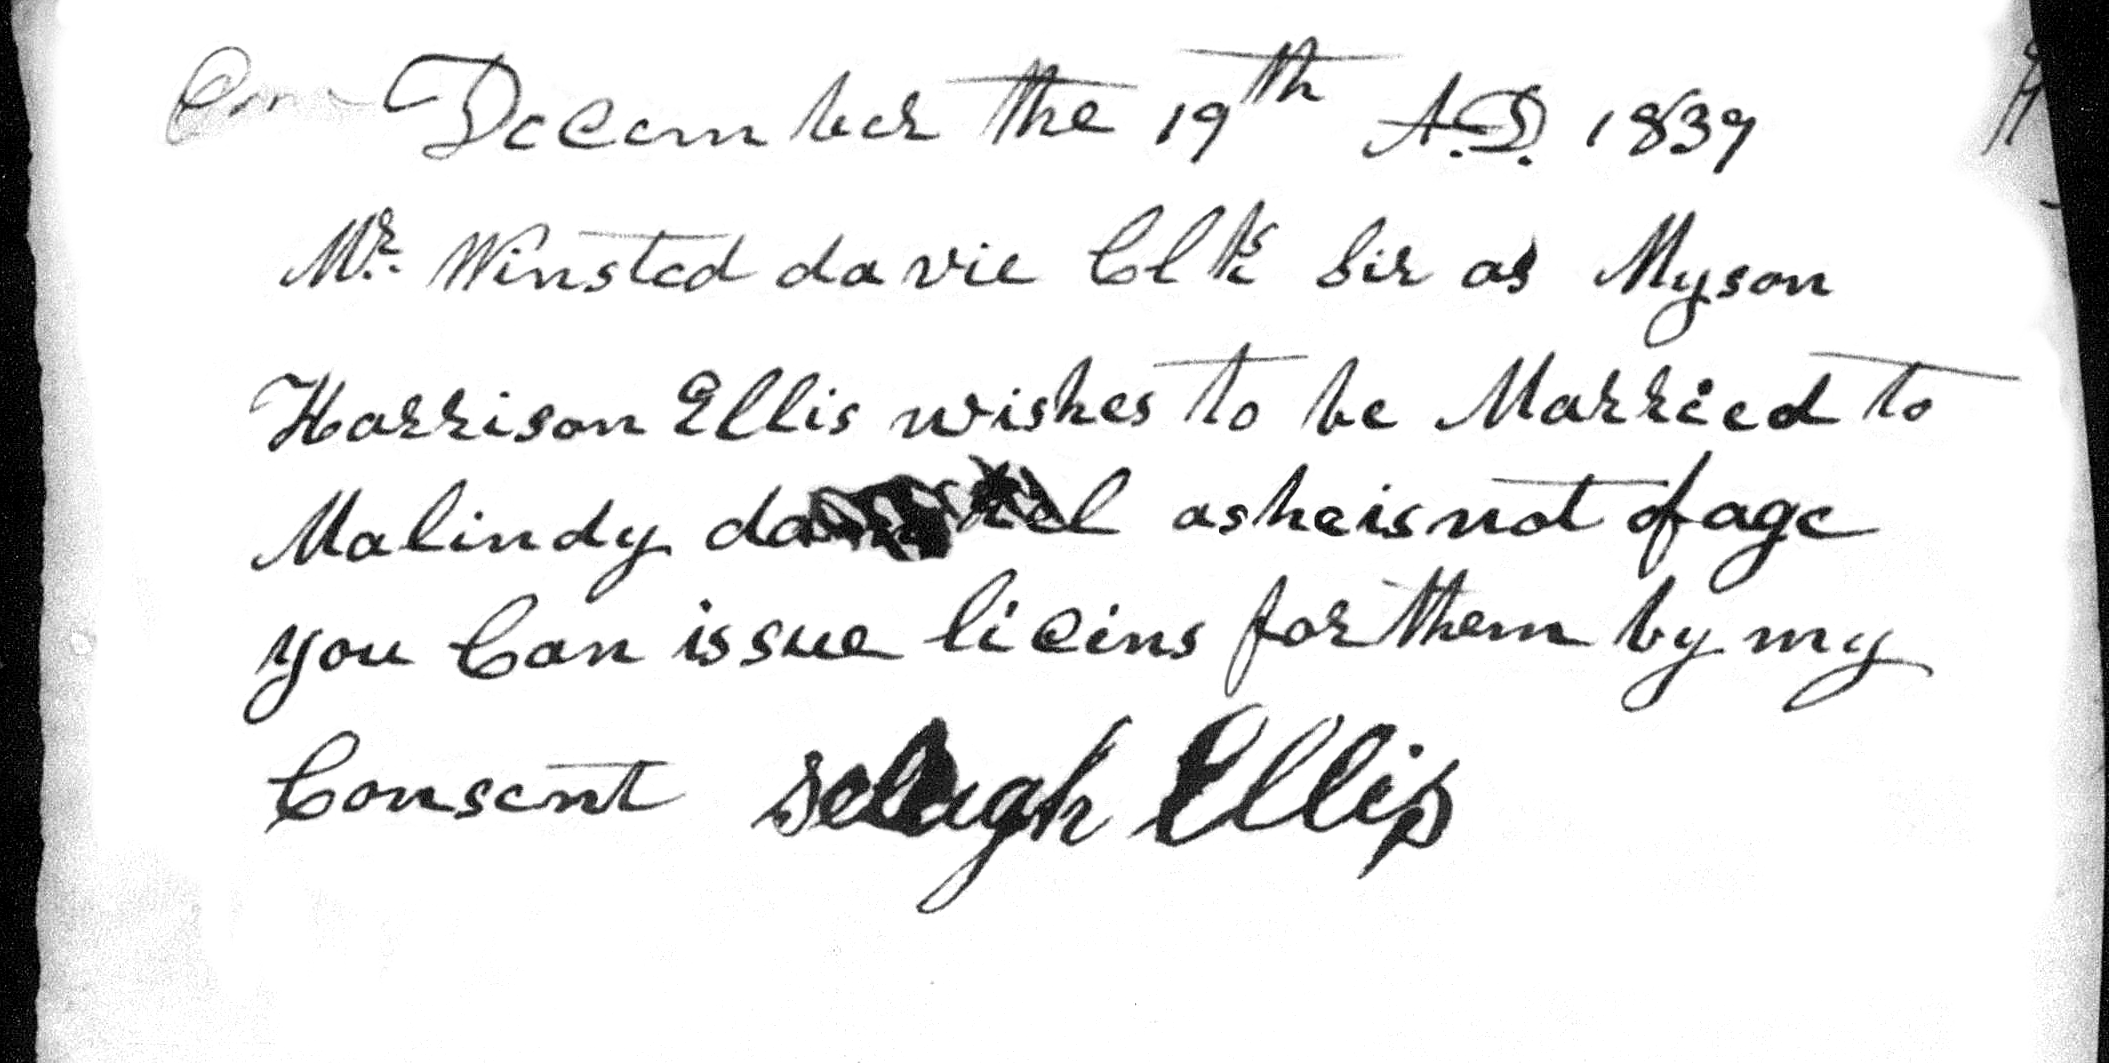 December the 19th A.D. 1839
Mr. Winsted davie Clk Sir as Myson
Harrison Ellis wishes to be Married to
Malindy as he is not of age
you Can issue liceins for them by my
Consent Ellis